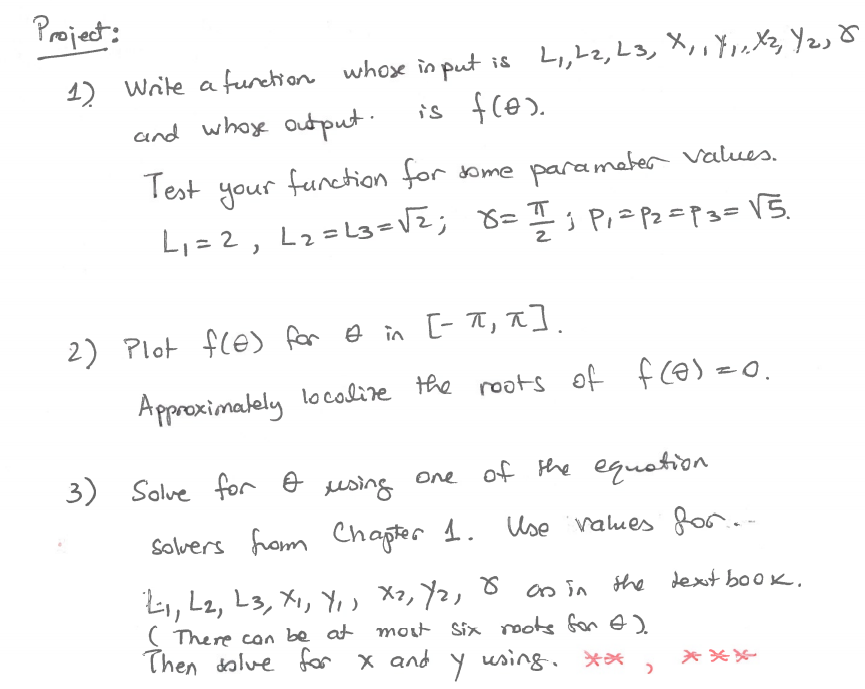 Project:
1) Write a function whose input is L₁, L₂, L₃, X₁, Y₁, X₂, Y₂, γ
and whose output. is f(θ).
Test your function for some parameter values.
L₁ = 2, L₂ = L₃ = √2; γ = π/2; P₁ = P₂ = P₃ = √5.
2) Plot f(θ) for θ in [-π, π].
Approximately localize the roots of f(θ) = 0.
3) Solve for θ using one of the equation
solvers from Chapter 1. Use values for...
L₁, L₂, L₃, X₁, Y₁, X₂, Y₂, γ as in the textbook.
(There can be at most six roots for θ).
Then solve for x and y using. **, ***